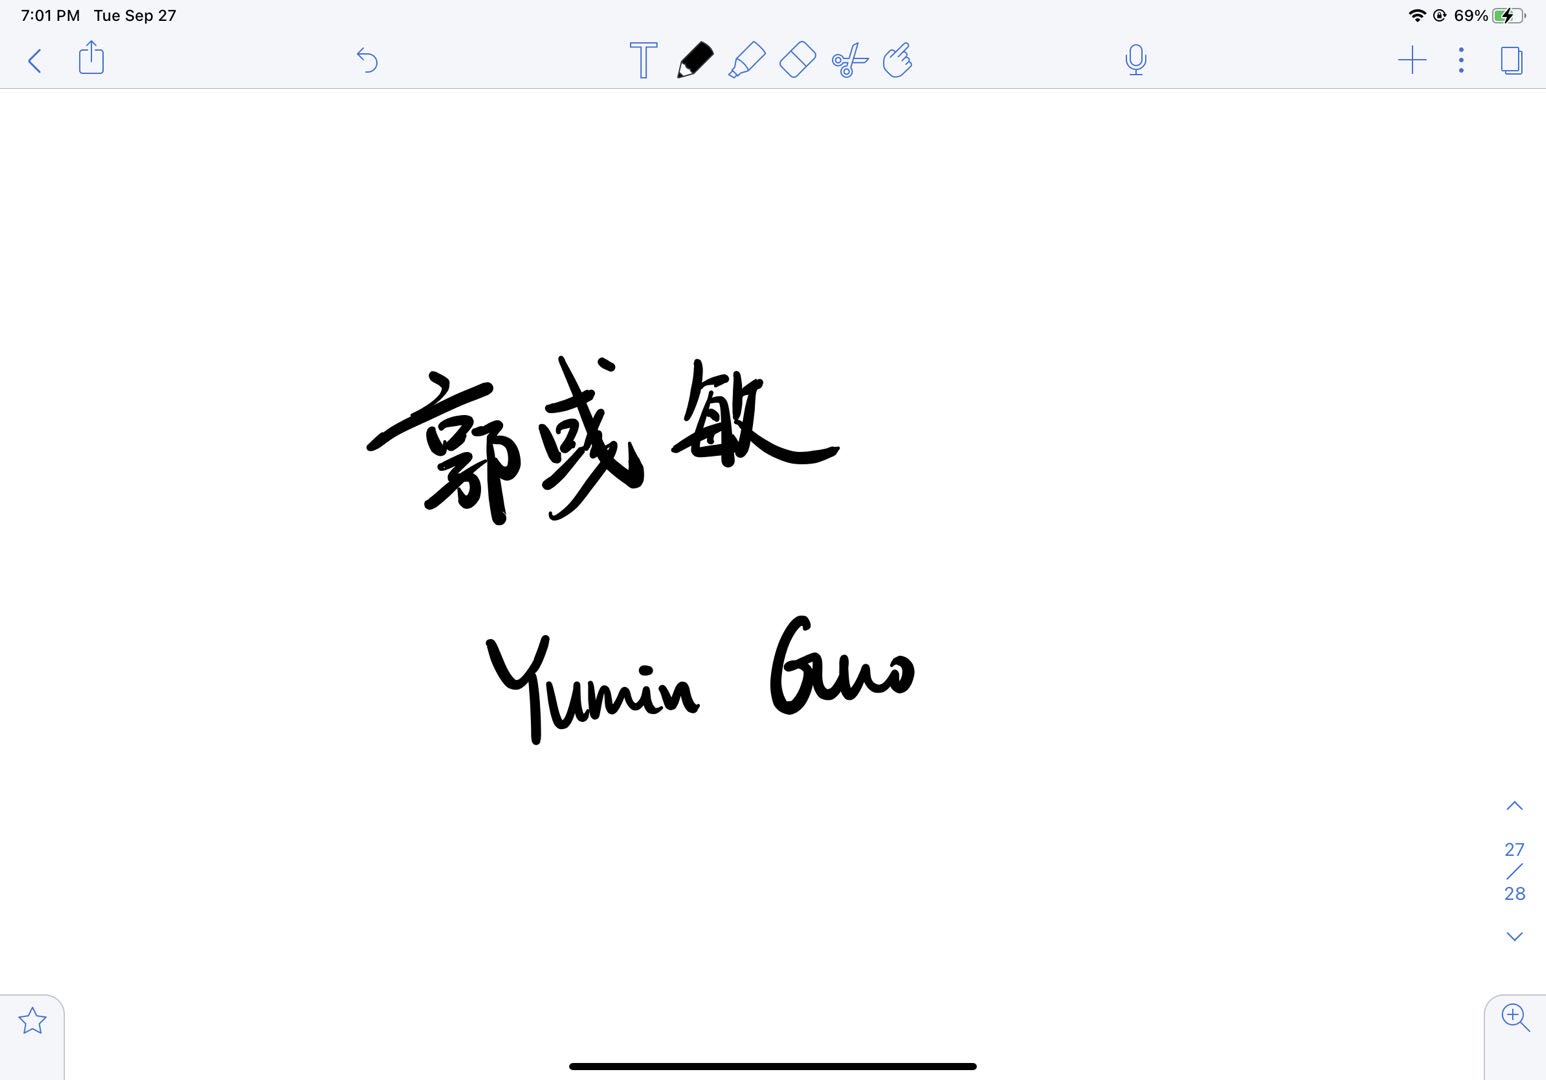 7:01 PM Tue Sep 27 69%
郭彧敏
Yumin Guo
27
/
28